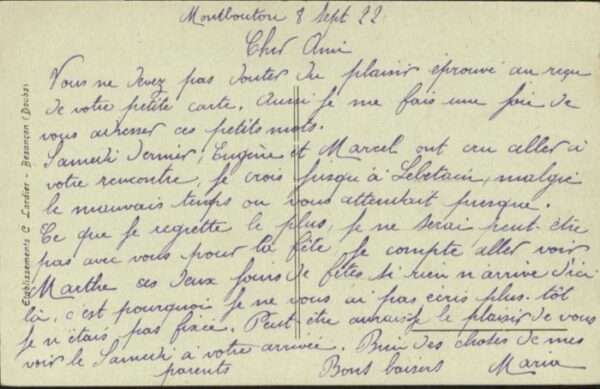 Montbouton 8 Sept 22
Cher Ami
Vous ne devez pas douter du plaisir éprouvé au reçu
de votre petite carte. Aussi je me fais une joie de
vous adresser ces petits mots.
Samedi dernier, Eugène et Marcel ont cru aller à
votre rencontre, je crois jusqu'à Lebetain, malgré
le mauvais temps on vous attendait presque.
Ce que je regrette le plus, je ne serai peut-être
pas avec vous pour la fête, je compte aller voir
Marthe ces deux jours de fêtes si rien n'arrive d'ici
là, c'est pourquoi je ne vous ai pas écris plus tôt
je n'étais pas fixée. Peut-être aurai-je le plaisir de vous
voir le Samedi à votre arrivée. Bien des choses de mes
parents Bons baisers Maria
Etablissements C. Lardier - Besançon (Doubs)